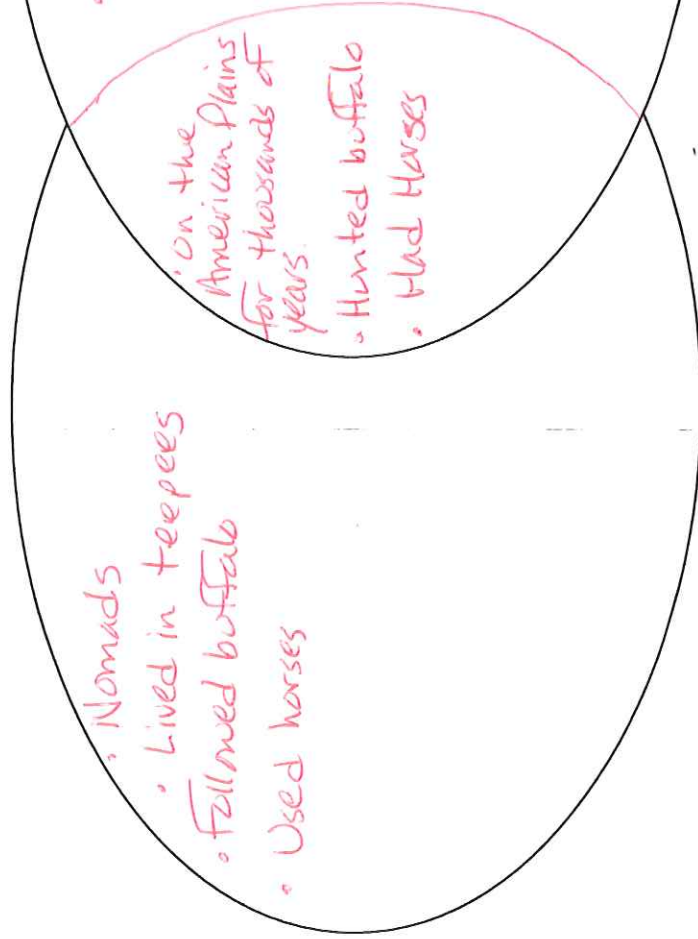 • Nomads
• Lived in teepees
• Followed buffalo
• Used horses
• On the
American Plains
for thousands of
years.
• Hunted buffalo
• Had Horses